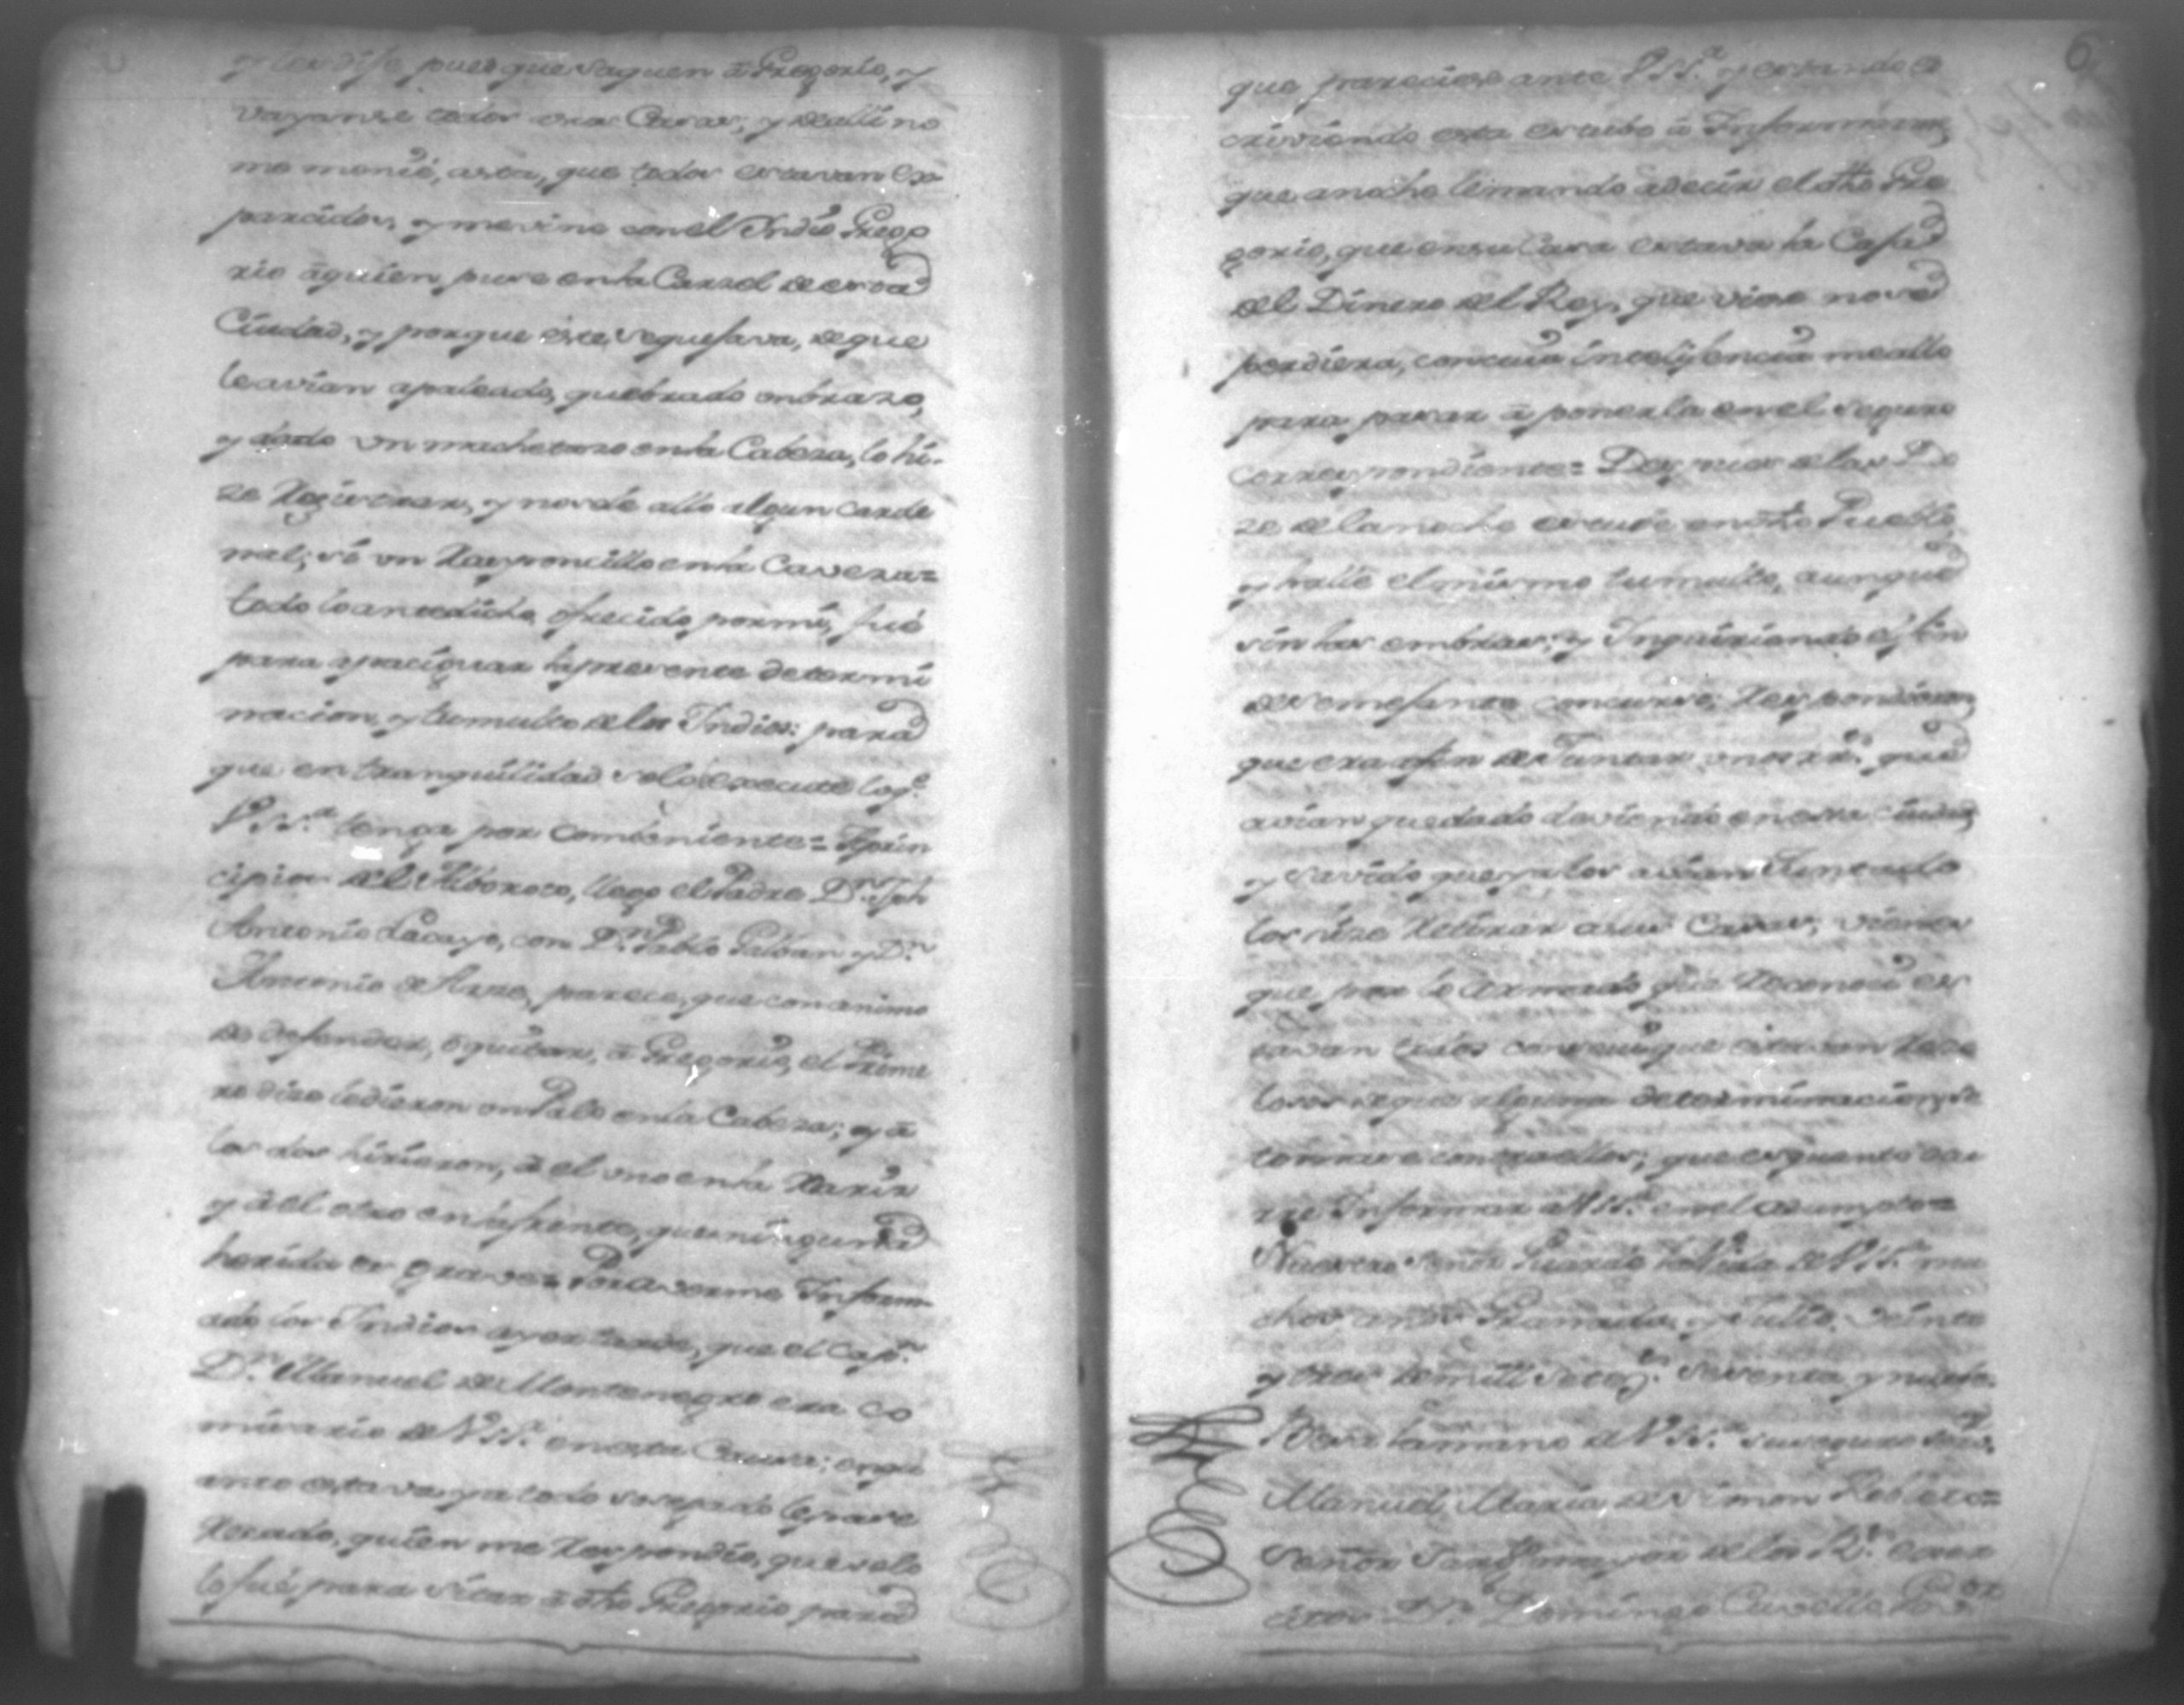 y les dije pues que saquen â Gregorio, y
vayanse todos a sus Casas; y de alli no
me moniê, asta, que todos estavan es
parcidos, y me vine con el Indio Grego
rio âquien puse en la Carzel de essa
Ciudad, y porque este se quejava, de que
le avian apaleado, quebrado un brazo,
y dado un machetazo en la Cabeza, lo hi-
ze Registrar, y no se le allo algun carde
nal; sî un Rasponcillo en la Caveza=
todo lo antedicho ofrecido por mi, fuê
para apaciguar la presente determi
nacion, y tumulto de los Indios: para
que en tranquilidad se execute lo q.e
V.S.a tenga por combeniente= A prin
cipios del Alboroto, llego el Padre D.n Jph
Antonio Lacayo, con D.n Pablo Galban y D.n
Antonio de Arze, parece, que con animo
de defender, ô quitar, â Gregorio, el Prime
ro dize le dieron un Palo en la Cabeza; y â
los dos hirieron, â el uno en la Nariz
y âel otro en la frente, que ninguna
herida es grave= Por averme Informa
ado los Indios ayer tarde, que el Cap.n
D.n Manuel de Montenegro era Co
misario de V.S.a en esta Causa; en qu
anto estava ya todo sosegado
quien me Respondio, que solo
lo fuê para sitar â dho Gregorio para
6
que pareciese ante V.S.a y estando es
criviendo esta estubo â Informarme
que anoche le mando a decir el dho Gre
gorio, que en su Casa estava la Caja
del Dinero del Rey, que viese no se
perdiera, con cuia inteligencia me allo
para pasar â ponerla en el seguro
correspondiente= Despues de las Do
ze de la noche estuve en dho Pueblo
y hallê el mismo tumulto, aunque
sin las embras; y Inquiriendo el fin
de semejante concurso; Respondieron
que era a fin de Juntar unos rr.s que
avian quedado deviendo en esta ciudad
y savido que ya los avian Juntado
los hize Retirar a sus Casas; vienes
que por lo armado que Reconoci es
tavan todos que estavan Reze
losos de que alguna determinacion se
tomase contra ellos; que es quanto ocu
rre Informar a V.S.a en el asumpto=
Nuestro Señor Guarde la Vida de V.S.a mu
chos años Granada, y Julio, veinte
y tres de mill setez.s sesenta y nueve=
Besa la mano de V.S.a su seguro serv.r
Manuel Maria de Simon Robleto=
Señor Sarg.to mayor de los R.s exer
citos D.n Domingo Cavello Gov.or